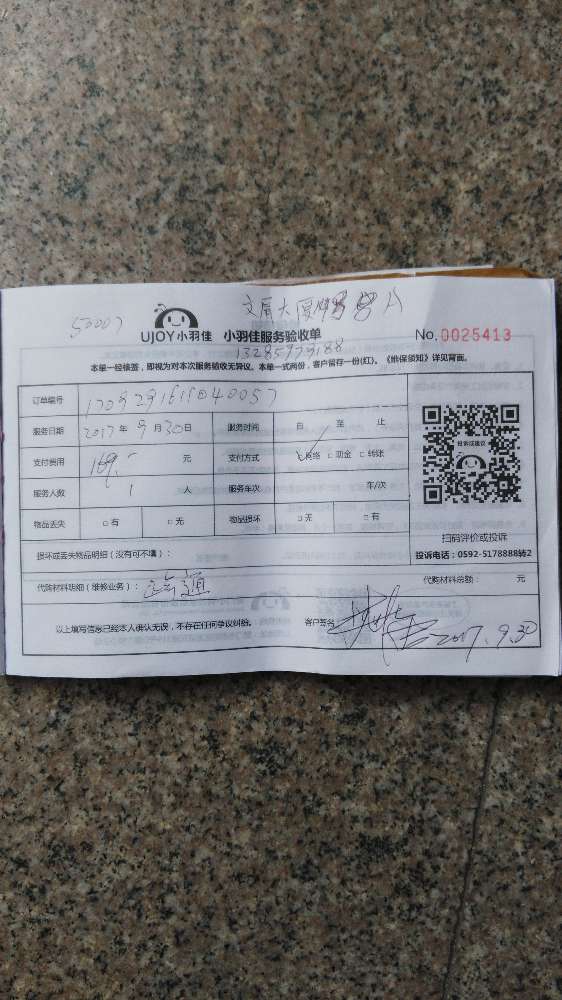 53007
UJOY小羽佳 小羽佳服务验收单 No.0025413
本单一经核签，即视为对本次服务验收无异议。本单一式两份，客户留存一份(红)。《维保须知》详见背面。
订单编号
服务日期 2017年9月30日 服务时间 自 至 止
支付费用 169.- 元 支付方式 网络 □现金 □转账
服务人数 1 人 服务车次 车/次
物品丢失 □有 □无 物品损坏 □无 □有
投诉或建议
扫码评价或投诉
投诉电话：0592-5178888转2
损坏或丢失物品明细（没有可不填）：
代购材料明细（维修业务）： 代购材料总额： 元
以上填写信息已经本人确认无误，不存在任何争议纠纷。 客户签名： 2017.9.30